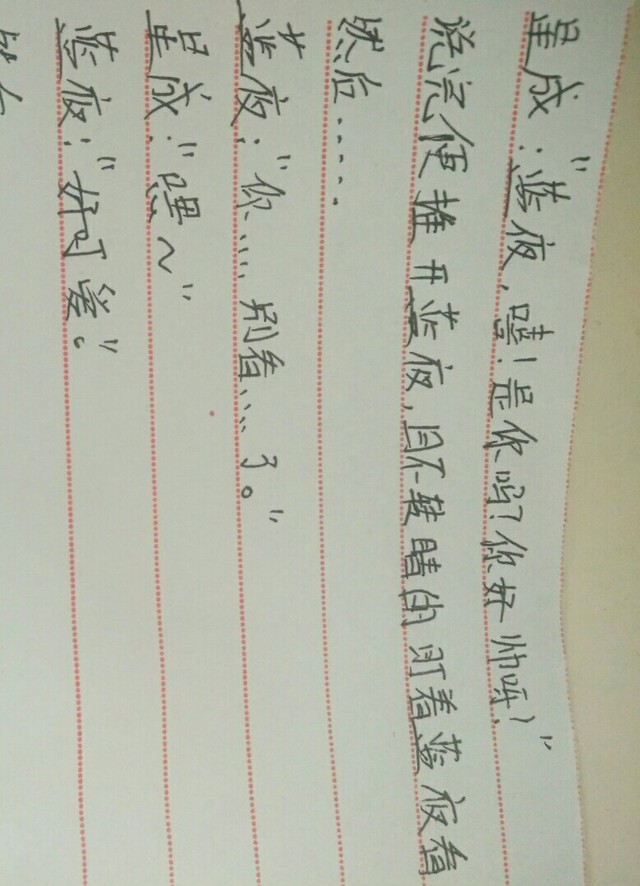 星成：“蓝夜，嘻！是你吗？你好帅呀！”
说完便推开蓝夜，目不转睛的盯着蓝夜看
然后．．．．．
蓝夜：“你．．．．．别看．．．．了。”
星成：“嘿～”
蓝夜：“好可爱。”